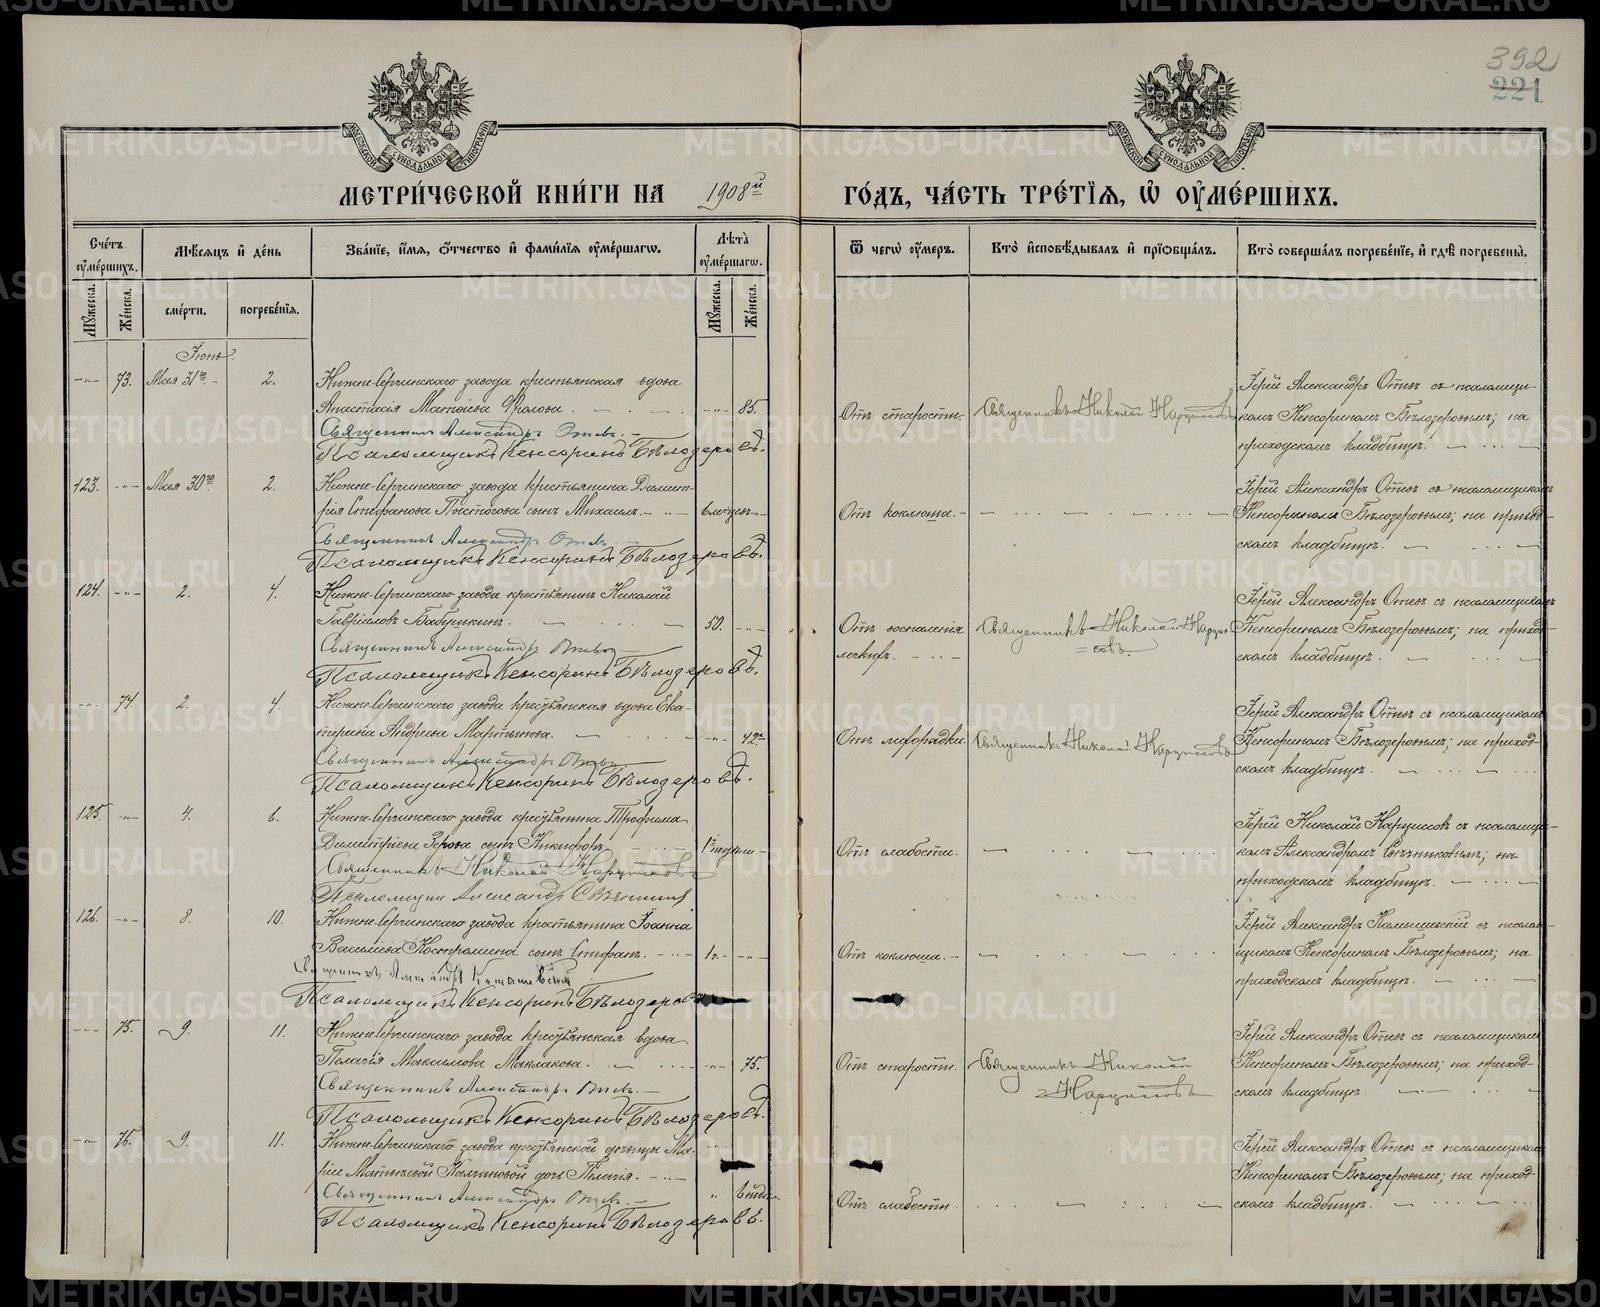 392
221
МОСКОВСКОЙ СѴНОДАЛЬНОЙ ТИПОГРАФІИ
МОСКОВСКОЙ СѴНОДАЛЬНОЙ ТИПОГРАФІИ
МЕТРИ́ЧЕСКОЙ КНИ́ГИ НА 1908й ГО́ДЪ, ЧА́СТЬ ТРЕ́ТЇЯ, Ѡ ОУМЕ́РШИХЪ.
Счетъ оумершихъ.
Мѣсяцъ и день
Званіе, имя, отчество и фамилія оумершагѡ.
Лѣта оумершагѡ.
Ѿ чегѡ оумеръ.
Кто исповѣдывалъ и пріобщалъ.
Кто совершалъ погребеніе, и гдѣ погребены.
Мужеска.
Женска.
смерти.
погребенія.
Мужеска.
Женска.
Іюнь.
-"- 73. Мая 31го. 2.
Нижне-Сергинскаго завода крестьянская вдова
Анастасія Матвіева Фролова. -"- 85.
Священникъ Александръ Отевъ.
Псаломщикъ Кенсоринъ Бѣлозеровъ.
Отъ старости.
Священникъ Николай Нарциссовъ
Іерей Александръ Отевъ съ псаломщи-
комъ Кенсориномъ Бѣлозеровымъ; на
приходскомъ кладбищѣ.
123. -"- Мая 30го. 2.
Нижне-Сергинскаго завода крестьянина Димит-
рія Стефанова сынъ Михаилъ. -"-
Священникъ Александръ Отевъ.
Псаломщикъ Кенсоринъ Бѣлозеровъ.
Отъ коклюша.
Іерей Александръ Отевъ съ псаломщикомъ
Кенсориномъ Бѣлозеровымъ; на приход-
скомъ кладбищѣ.
124. -"- 2. 4.
Нижне-Сергинскаго завода крестьянинъ Николай
Гавріиловъ Бабушкинъ. 50. -"-
Священникъ Александръ Отевъ
Псаломщикъ Кенсоринъ Бѣлозеровъ.
Отъ воспаленія
легкихъ.
Священникъ Николай Нарцис-
совъ.
Іерей Александръ Отевъ съ псаломщикомъ
Кенсориномъ Бѣлозеровымъ; на приход-
скомъ кладбищѣ.
-"- 74. 2. 4.
Нижне-Сергинскаго завода крестьянская вдова Ека-
терина Андреева Мартынова. -"- 42.
Священникъ Александръ Отевъ.
Псаломщикъ Кенсоринъ Бѣлозеровъ.
Отъ лихорадки.
Священникъ Николай Нарциссовъ
Іерей Александръ Отевъ съ псаломщикомъ
Кенсориномъ Бѣлозеровымъ; на приход-
скомъ кладбищѣ.
125. -"- 4. 6.
Нижне-Сергинскаго завода крестьянина Трофима
Димитріева Зерова сынъ Никифоръ.
Священникъ Николай Нарциссовъ
Псаломщикъ Александръ
Отъ слабости.
Іерей Николай Нарциссовъ съ псаломщи-
комъ Александромъ на
приходскомъ кладбищѣ.
126. -"- 8. 10.
Нижне-Сергинскаго завода крестьянина Іоанна
Василіева Костромина сынъ Стефанъ. 1. -"-
Священникъ Александръ
Псаломщикъ Кенсоринъ Бѣлозеровъ
Отъ коклюша.
Іерей Александръ съ псалом-
щикомъ Кенсориномъ Бѣлозеровымъ; на
приходскомъ кладбищѣ.
-"- 75. 9. 11.
Нижне-Сергинскаго завода крестьянская вдова
Пелагія Максимова Маклакова. -"- 75.
Священникъ Александръ Отевъ.
Псаломщикъ Кенсоринъ Бѣлозеровъ.
Отъ старости.
Священникъ Николай
Нарциссовъ
Іерей Александръ Отевъ съ псаломщикомъ
Кенсориномъ Бѣлозеровымъ; на приход-
скомъ кладбищѣ.
-"- 76. 9. 11.
Нижне-Сергинскаго завода крестьянской дѣвицы Ма-
ріи дочь Пелагія.
Священникъ Александръ Отевъ.
Псаломщикъ Кенсоринъ Бѣлозеровъ.
Отъ слабости.
Іерей Александръ Отевъ съ псаломщикомъ
Кенсориномъ Бѣлозеровымъ; на приход-
скомъ кладбищѣ.
METRIKI.GASO-URAL.RU